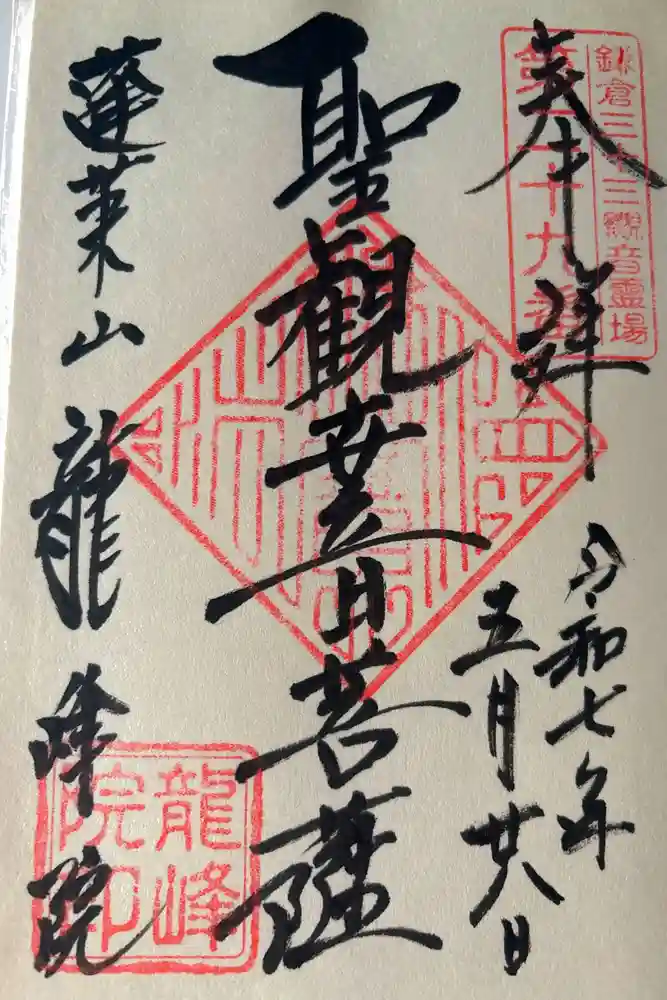 鎌倉三十三観音霊場
第二十九番
奉拝
令和七年
五月廿八日
聖観世音菩薩
蓬莱山龍峰院
龍峰
院印